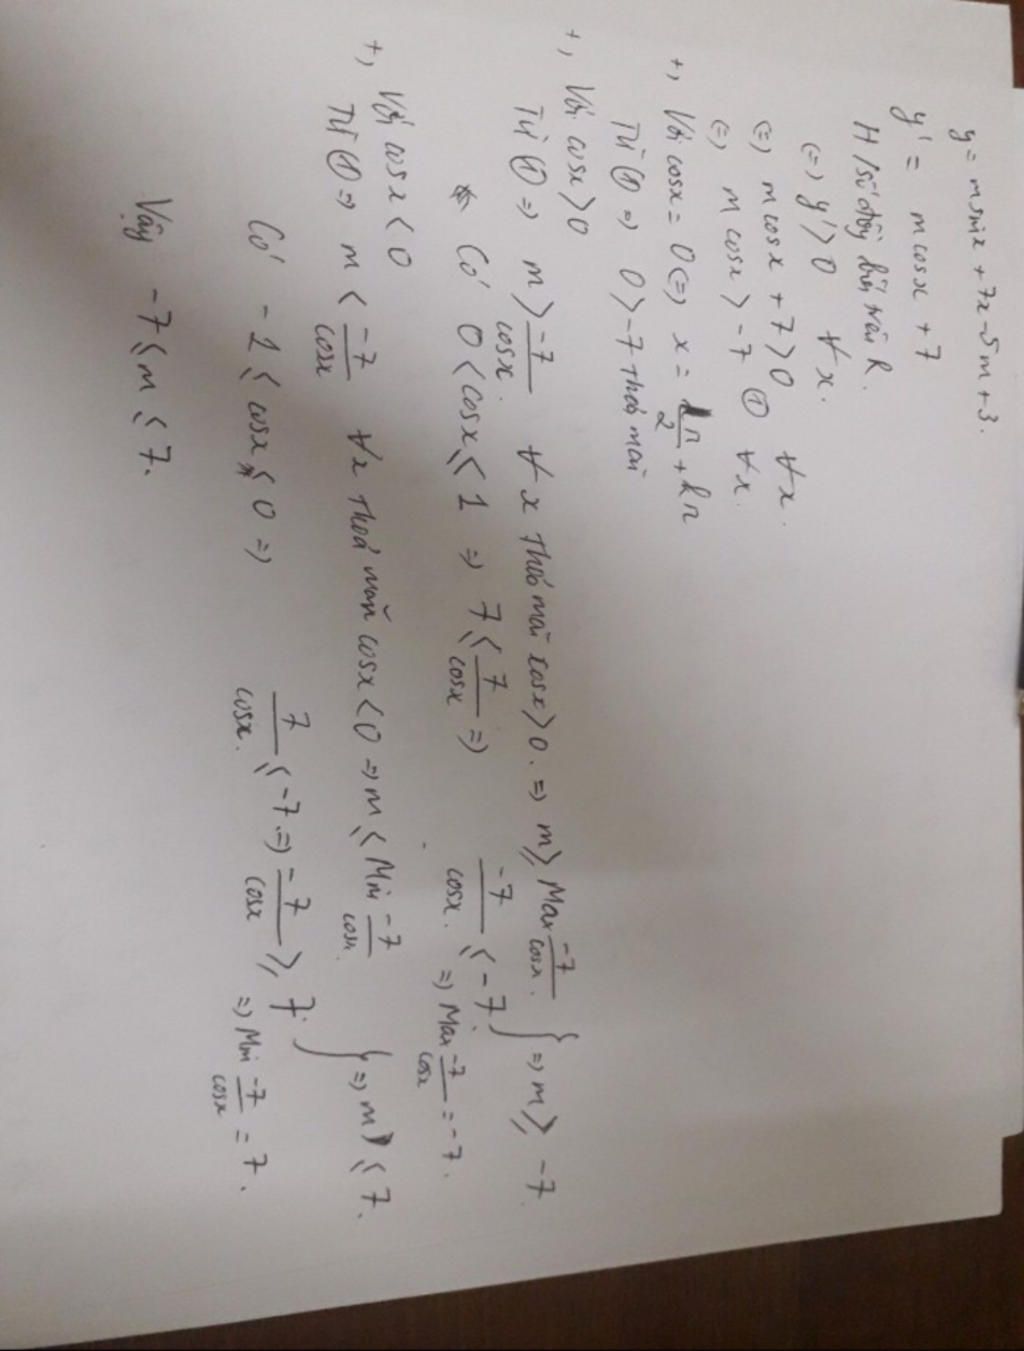 y = m sinx + 7x - 5m + 3.
y' = m cosx + 7
H/số đồng biến trên R.
(=) y' > 0 ∀x.
(=) m cosx + 7 > 0 ∀x.
(=) m cosx > -7 ① ∀x.
+, Với cosx = 0 (=) x = π/2 + kπ
Từ ① => 0 > -7 thoả mãn
+, Với cosx > 0
Từ ① => m > -7/cosx. ∀x thoả mãn cosx > 0. => m ≥ Max -7/cosx.
Có 0 < cosx ≤ 1 => 7 ≤ 7/cosx => -7/cosx. ≤ -7. } => m ≥ -7.
=> Max -7/cosx = -7.
+, Với cosx < 0
Từ ① => m < -7/cosx ∀x thoả mãn cosx < 0 => m ≤ Min -7/cosx.
Có -1 ≤ cosx ≤ 0 => 7/cosx. ≤ -7. => -7/cosx ≥ 7. } => m ≤ 7.
=> Min -7/cosx = 7.
Vậy -7 ≤ m ≤ 7.